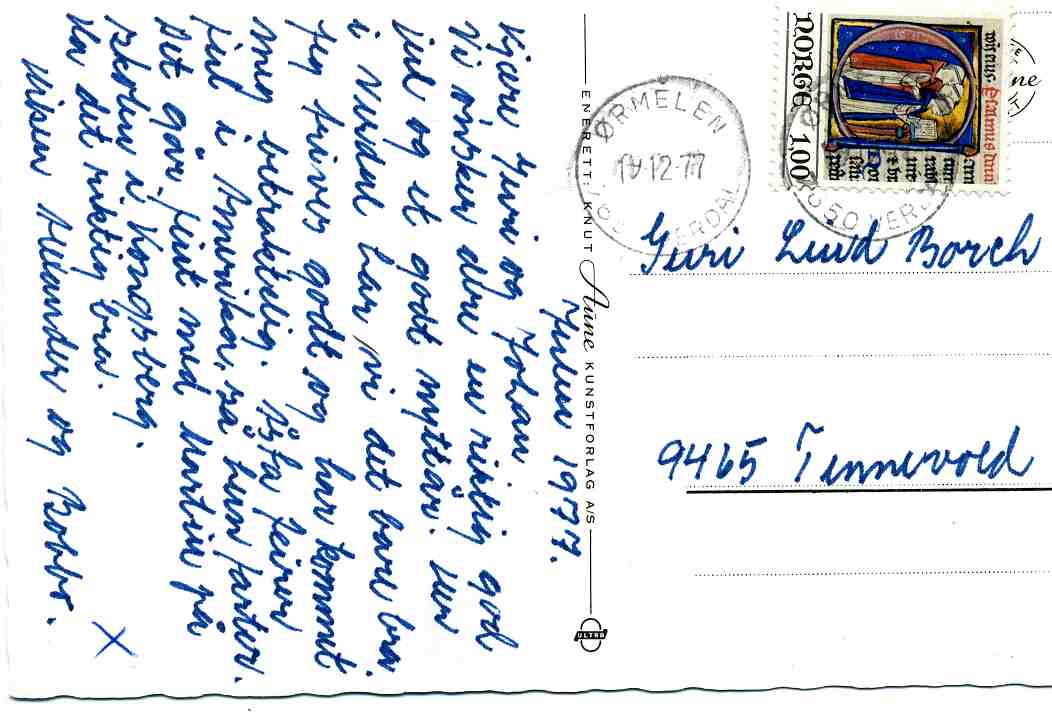 Julen 1977.
Kjære Guri og Johan
Vi ønsker dere en riktig god
jul og et godt nyttår. Her
i Verdal har vi det bare bra.
Jeg trives godt og har kommet
meg betraktelig. Åsta feirer
jul i Amerika, så hun farter.
Det går fint med Martin på
skolen i Kongsberg.
Ha det riktig bra.
Hilsen og Bobbo.
X
ENERETT: KNUT Aune KUNSTFORLAG A/S
ULTRA
NORGE 1,00
ØRMELEN
12-77
VERDAL
7650 VERDAL
Guri Lund Borch
9465 Tennevold